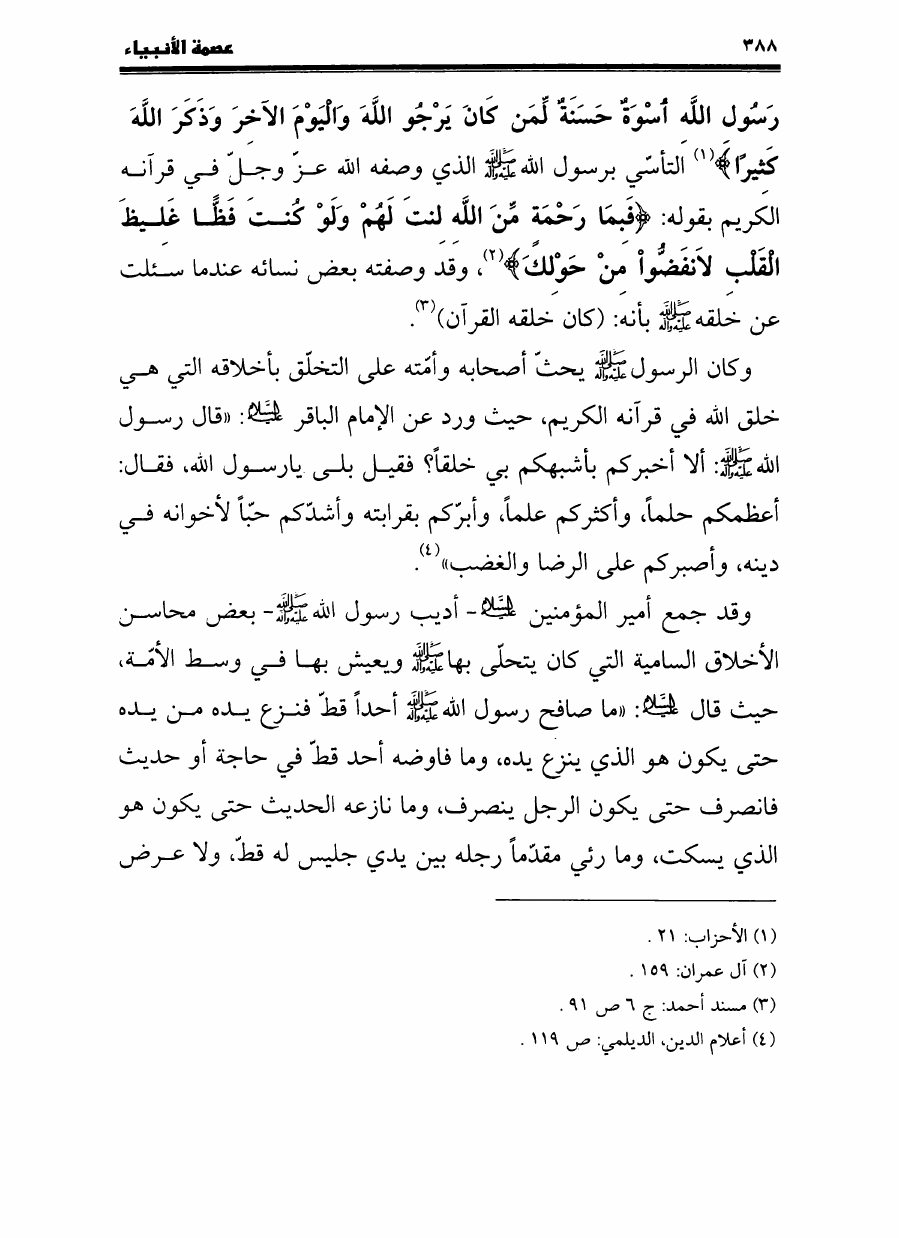 ٣٨٨
عصمة الأنبياء
رَسُولِ اللَّهِ أُسْوَةٌ حَسَنَةٌ لِّمَن كَانَ يَرْجُو اللَّهَ وَالْيَوْمَ الآخِرَ وَذَكَرَ اللَّهَ
كَثِيرًا﴾(١) التأسّي برسول الله ﷺ الذي وصفه الله عزّ وجلّ في قرآنه
الكريم بقوله: ﴿فَبِمَا رَحْمَةٍ مِّنَ اللَّهِ لِنتَ لَهُمْ وَلَوْ كُنتَ فَظًّا غَلِيظَ
الْقَلْبِ لاَنفَضُّواْ مِنْ حَوْلِكَ﴾(٢)، وقد وصفته بعض نسائه عندما سئلت
عن خلقه ﷺ بأنه: (كان خلقه القرآن)(٣).
وكان الرسول ﷺ يحثّ أصحابه وأمّته على التخلّق بأخلاقه التي هي
خلق الله في قرآنه الكريم، حيث ورد عن الإمام الباقر عليه السلام: «قال رسول
الله ﷺ: ألا أخبركم بأشبهكم بي خلقاً؟ فقيل بلى يارسول الله، فقال:
أعظمكم حلماً، وأكثركم علماً، وأبرّكم بقرابته وأشدّكم حبّاً لأخوانه في
دينه، وأصبركم على الرضا والغضب»(٤).
وقد جمع أمير المؤمنين عليه السلام - أديب رسول الله ﷺ - بعض محاسن
الأخلاق السامية التي كان يتحلّى بها ﷺ ويعيش بها في وسط الأمّة،
حيث قال عليه السلام: «ما صافح رسول الله ﷺ أحداً قطّ فنزع يده من يده
حتى يكون هو الذي ينزع يده، وما فاوضه أحد قطّ في حاجة أو حديث
فانصرف حتى يكون الرجل ينصرف، وما نازعه الحديث حتى يكون هو
الذي يسكت، وما رئي مقدّماً رجله بين يدي جليس له قطّ، ولا عرض
(١) الأحزاب: ٢١ .
(٢) آل عمران: ١٥٩ .
(٣) مسند أحمد: ج ٦ ص ٩١ .
(٤) أعلام الدين، الديلمي: ص ١١٩ .